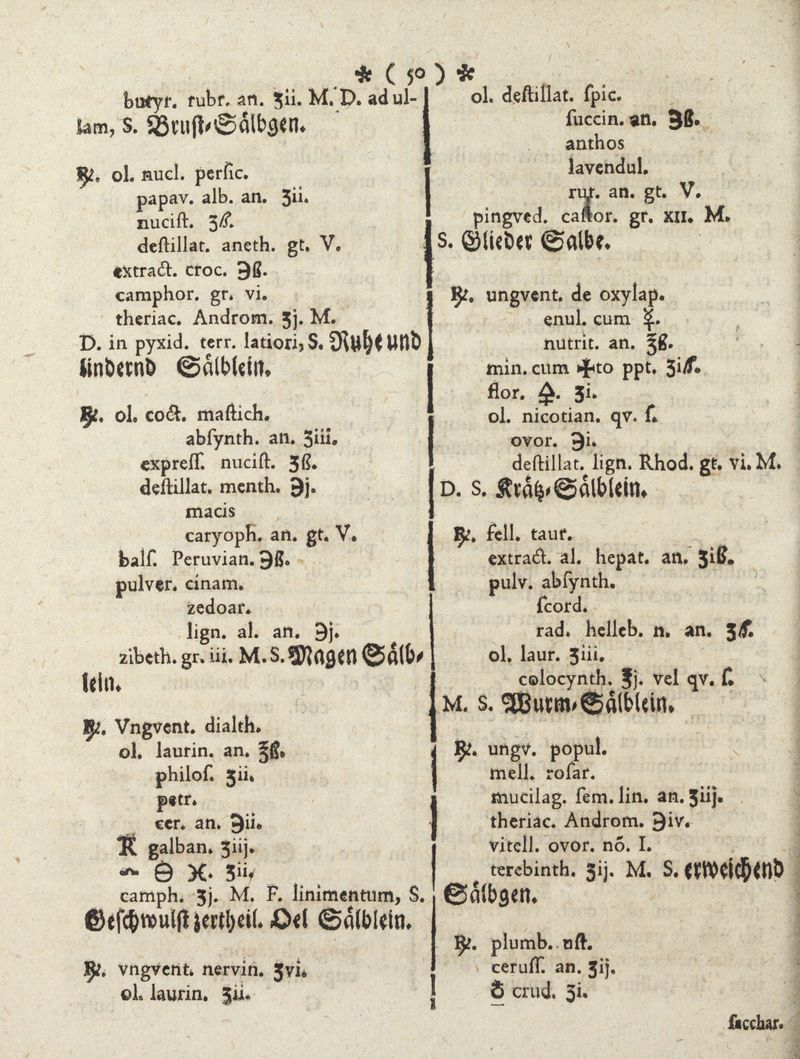 * ( 50 ) *
butyr. rubr. an. ʒii. M. D. ad ul-
lam, S. Bruſt⸗Sälbgen.
℞. ol. nucl. perſic.
papav. alb. an. ʒii.
nuciſt. ʒß.
deſtillat. aneth. gt. V.
extract. croc. ℈ß.
camphor. gr. vi.
theriac. Androm. ʒj. M.
D. in pyxid. terr. latiori, S. Ruhe und
lindernd Sälblein.
℞. ol. coct. maſtich.
abſynth. an. ʒiii.
expreſſ. nuciſt. ʒß.
deſtillat. menth. ℈j.
macis
caryoph. an. gt. V.
balſ. Peruvian. ℈ß.
pulver. cinam.
zedoar.
lign. al. an. ℈j.
zibeth. gr. iii. M. S. Magen Sälb⸗
lein.
℞. Vngvent. dialth.
ol. laurin. an. ℥ß.
philoſ. ʒii.
petr.
cer. an. ℈ii.
galban. ʒiij.
ʒii.
camph. ʒj. M. F. linimentum, S.
Geſchwulſt zertheil. Oel Sälblein.
℞. Vngvent. nervin. ʒvi.
ol. laurin. ʒii.
ol. deſtillat. ſpic.
ſuccin. an. ℈ß.
anthos
lavendul.
rut. an. gt. V.
pingved. caſtor. gr. XII. M.
S. Glieder Salbe.
℞. ungvent. de oxylap.
enul. cum ☿.
nutrit. an. ℥ß.
min. cum ✠to ppt. ʒiß.
flor. 🜍. ʒi.
ol. nicotian. qv. ſ.
ovor. ℈i.
deſtillat. lign. Rhod. gt. vi. M.
D. S. Krätz⸗Sälblein.
℞. fell. taur.
extract. al. hepat. an. ʒiß.
pulv. abſynth.
ſcord.
rad. helleb. n. an. ʒß.
ol. laur. ʒiii.
colocynth. ℥j. vel qv. ſ.
M. S. Wurm⸗Sälblein.
℞. ungv. popul.
mell. roſar.
mucilag. ſem. lin. an. ʒiij.
theriac. Androm. ℈iv.
vitell. ovor. nō. I.
terebinth. ʒij. M. S. erweichend
Sälbgen.
℞. plumb. uſt.
ceruſſ. an. ʒij.
♁ crud. ʒi.
ſacchar.